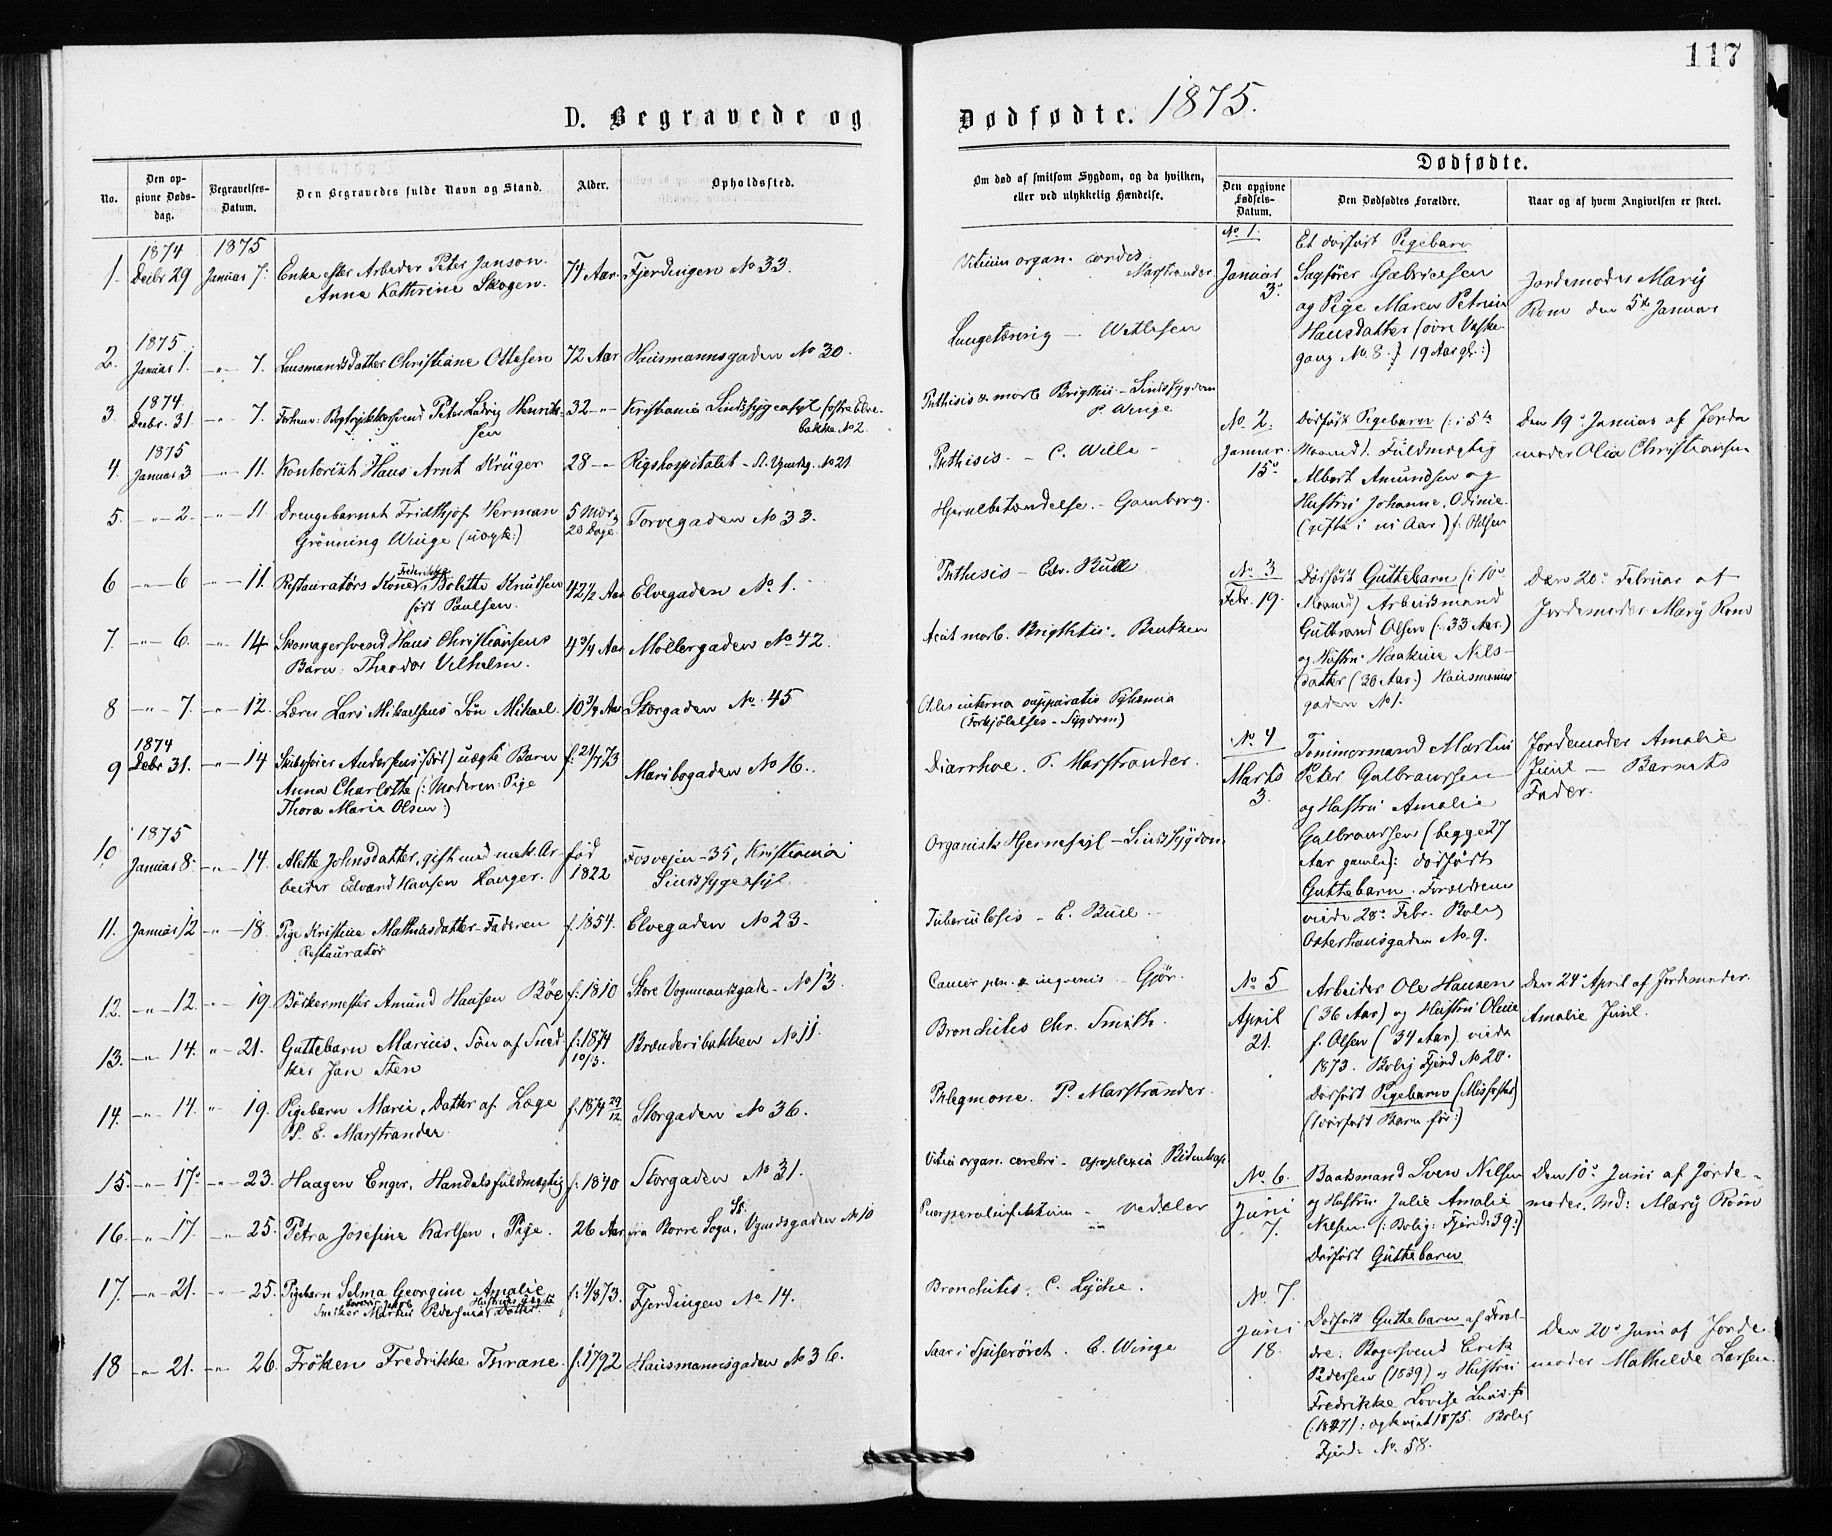 117
D. Begravede og
Dødfødte. 1875.
No.
Den opgivne Dødsdag.
Begravelses-Datum.
Den Begravedes fulde Navn og Stand.
Alder.
Opholdssted.
Om død af smitsom Sygdom, og da hvilken, eller ved ulykkelig Hændelse.
Dødfødte.
Den opgivne Fødsels-Datum.
Den Dødfødtes Forældre.
Naar og af hvem Angivelsen er skeet.
1874 1875
1. Decbr 29 Januar 7. Enke efter Arbeider Peter Janson 74 Aar. Fjerdingen No 33. Vitium organ. cordis
Anna Kathrine Skogen. Marstrander
1875
2. Januar 1. -"- 7. Lensmandsdatter Christiane Ottesen 72 Aar Hausmannsgaden No 30. Lungetæring - Wetlesen
1874
3 Decbr. 31 -"- 7. Forhenv: Bogtrykkersvend Peter Ludvig Henrik- 32 -"- Kristiania Sindssygeasyl Phthisis & morb Brigthii - Sindssygdom
sen bakke No 2. P. Winge
1875
4 Januar 3 -"- 11. Kontorist Hans Arnt Krüger 28 -"- Rigshospitalet - St. Vgmdsg. No 21 Phthisis - C. Wille -
5. -"- 2. -"- 11. Drengebarnet Fridthjof Herman 5 Mdr 20 Dage Torvegaden No 33. Hjernebetændelse. - Gamborg.
Grönning Winge (uægte:)
6 -"- 6 -"- 11. Restauratørs Kone Frederikke Bolette Knudsen 42 1/2 Aar Elvegaden No 1. Phthisis - Edv. Bull
født Paulsen.
7. -"- 6. -"- 14 Skomagersvend Hans Christiansens 4 3/4 Aar Møllergaden No 42. Acut morb. Brigthii. Bentzen
Barn: Theodor Vilhelm.
8 -"- 7. -"- 12. Lærer Lars Mikaelsens Søn Mikael. 10 3/4 Aar Storgaden No. 45 Otitis interna suppurativ Pyhæmia
(Forkjølelses-Sygdom)
1874
9 Debr 31. -"- 14 Skibsfører Andersens (død) uægte Barn f: 21/7 73 Maribogaden No 16. Diarrhoe. P. Marstrander.
Anna Charlotte (: Moderen: Pige
Thora Maria Olsen:)
1875
10 Januar 8. -"- 14. Alette Johnsdatter, gift med mekr. Ar- fød 1822 Fosvejen - 35, Kristiania Organisk Hjernesygd - Sindssygdom
beider Edvard Hansen Langer. Sindssygeasyl.
11. Januar 12 -"- 18. Pige Kristine Mathiasdatter - Faderen f. 1854. Elvegaden No 23. Tuberculosis - E. Bull
Restauratør
12. -"- 12. -"- 19. Böckermester Amund Hansen Böe f: 1810 Store Vognmandsgade - No 13. Cancer pen. & inguenis - Gjør.
13. -"- 14. -"- 21. Guttebarn Marius, Søn af Sned- f: 1874 10/3. Brænderibakken No 11. Bronchitis Chr. Smith.
ker Jan Sten
14. -"- 14. " 19. Pigebarn Marie, Datter af Læge f. 1874 29/12 Storgaden No 36. Phlegmone. P. Marstrander.
P. E. Marstrander
15. -"- 17. -"- 23. Haagen Enger, Handelsfuldmægtig f: 1840 Storgaden No 31. Vitia organ. cerebri - apoplexia
16. -"- 17. -"- 25. Petra Josefine Karlsen, Pige. 26 Aar fra Borre Sogn, St. Vgmdsgaden No 10 Puerperalinfektion - Vedeler
17. -"- 21. -"- 25. Pigebarn Selma Georgine Amalie f: 1873. Fjerdingen No 14. Bronchitis, C. Lyche.
Snekker Martin Pedersens Datter.
18 -"- 21. -"- 26. Frøken Fredrikke Thrane. f: 1792 Hausmannsgaden No 36. Saar i Spiserøret. C. Winge
No 1. Et dødfødt Pigebarn
Januar 3. Sagfører Gabrielsen
og Pige Maren Petrine
Hansdatter (øvre Vaske-
gang No. 8.) 19 Aar gl:)
Jordemoder Mary
Rom den 5te Januar
No. 2. Dødfødt Pigebarn (: i 5te
Januar 15. Maaned). Fuldmægtig
Albert Amundsen og
Hustru Johanne Odinie
(gifte i ni Aar) f: Ohlsen
Den 19. Januar af Jorde
moder Olia Christiansen
No 3 Dødfødt Guttebarn (: i 10
Febr. 19. Maaned) Arbeidsmand
Gulbrand Olsen (: 33 Aar.)
og Hustru Haakine Nils-
datter (30 Aar.) Hausmanns
gaden No 1.
Den 20. Februar af
Jordemoder Mary Rom
No 4 Tømmermand Martin
Marts 3. Peter Gulbranssen
og Hustru Amalie
Gulbranssen (begge 27
Aar gamle): dødfødt
Guttebarn. Forældrene
viede 28. Febr. Bolig
Osterhausgaden No. 9.
Jordemoder Amalie
Juul - Barnets
Fader.
No 5 Arbeider Ole Hansen
April 21. (36 Aar) og Hustru Oline
f. Olsen (34 Aar). viede
1873. Bolig Fjerd No 20.
Dødfødt Pigebarn (Misfoster)
( Barn før:)
Den 24. April af Jordemoder
Amalie Juul.
No. 6. Baadsmand Sven Nilsen
Juni 7. og Hustru Julie Amalie
Nilsen. (: Bolig: Fjerd: 39:)
Dødfødt Guttebarn
Den 10. Juni af Jorde-
moder Md: Mary Rom
No. 7.
Juni 18. Dødfødt Guttebarn af Foræl-
dre: Bagersvend Erik
Pedersen (1839) og Hustru
Fredrikke Lovise
(: 1847): 1875. Bolig
Fjerd: No. 58.
Den 20. Juni af Jorde
moder Mathilde Larsen.